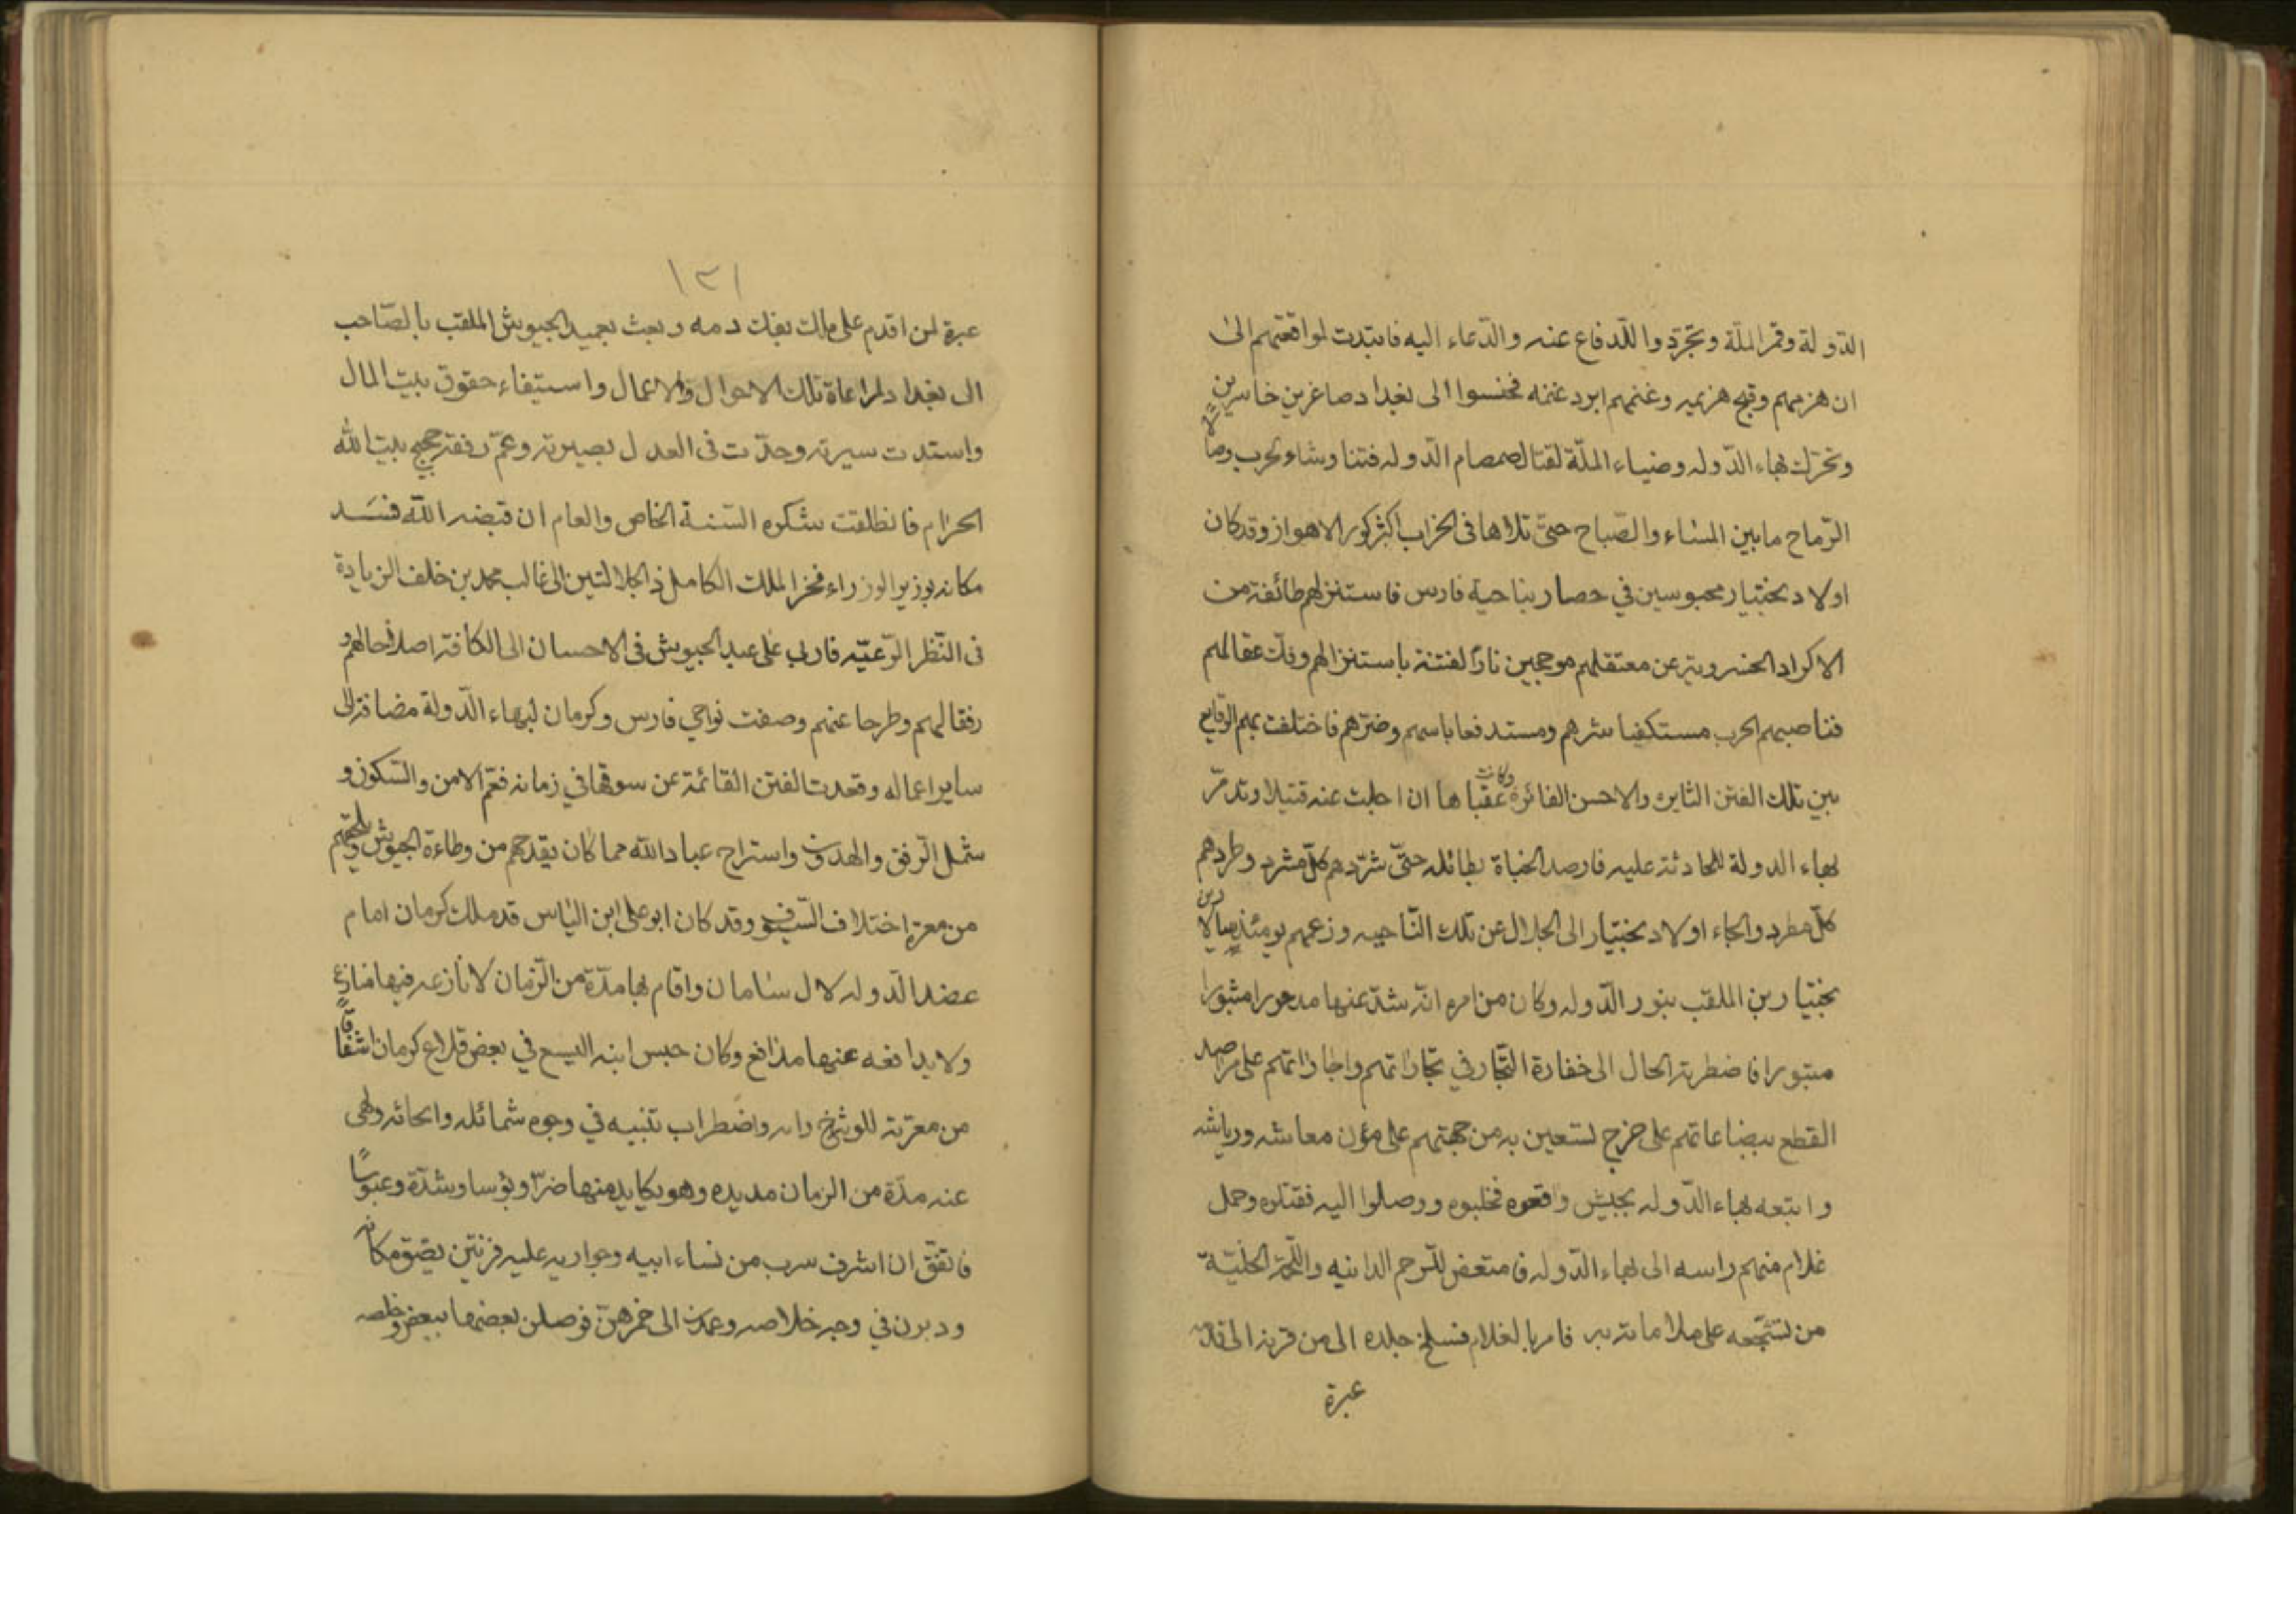 الدولة وقمر الملة وتجردوا للدفاع عنه والدعاء اليه فابتدت لمواقعتهم الى
ان هزمهم وقبح هزيمه وغنمهم ابرد غنمه فخنسوا الى بغداد صاغرين خاسرين
وتحرك بهاء الدوله وضياء الملة لقتال صمصام الدوله فتناوشا الحرب وصالا
الرماح مابين المساء والصباح حتى تلاها في الخراب اكثر كور الاهواز وقد كان
اولاد بختيار محبوسين في حصار بناحية فارس فاستنزلهم طائفة من
الاكراد الخسرويه عن معتقلهم موججين نار الفتنة باستنزالهم وفك عقالهم
فناصبهم الحرب مستكفيا شرهم ومستدفعا باسهم وضرهم فاختلفت بهم الوقايع
بين تلك الفتن الثايره والاحن الفائرة وكانت عقباها ان اجلت عنه قتيلا وتدمر
بهاء الدولة للحادثة عليه فارصد الجناة بطائله حتى شردهم كل مشرد وطردهم
كل مطرد والجاء اولاد بختيار الى الجلال عن تلك الناحيه وزعيمهم يومئذ سالار بن
بختيار بن الملقب بنور الدوله وكان من امره انه شذ عنها مدحورا مثبورا
مبتورا فاضطرته الحال الى خفارة التجار في تجاراتهم واجازاتهم على مراصد
القطع ببضاعاتهم على خرج يستعين به من جهتهم على مؤن معاشه ورياشه
واتبعه بهاء الدوله بجيش واقعوه فغلبوه ووصلوا اليه فقتلوه وحمل
غلام منهم راسه الى بهاء الدوله فامتعض للرحم الدانيه واللحمة
من تشجعه على ملاماته به فامر بالغلام فسلخ جلده الى من قرنه الى قدمه
عبرة
١٣١
عبرة لمن اقدم على ملك بفك دمه وبعث بعميد الجيوش الملقب بالصاحب
الى بغداد لمراعاة تلك الاحوال والاعمال واستيفاء حقوق بيت المال
واستدت سيرته وحدت في العدل بصيرته وعم رفقه حجيج بيت الله
الحرام فانطلقت بشكره السنة الخاص والعام ان قبضه الله فسد
مكانه بوزير الوزراء فخر الملك الكامل ذي الجلالتين الى غالب محمد بن خلف الزيادة
في النظر الرعيه فاربى على عميد الجيوش في الاحسان الى الكافة اصلاحا لهم و
رفقا لهم وطرحا عنهم وصفت نواحي فارس وكرمان لبهاء الدولة مضافة الى
ساير اعماله وقعدت الفتن القائمة عن سوقها في زمانه فعم الامن والسكون و
شمل الرفق والهدون واستراح عباد الله مما كان يقدحهم من وطاءة الجيوش ويلحقهم
من معرة اختلاف السيوف وقد كان ابو على ابن الياس قد ملك كرمان امام
عضد الدوله لال سامان واقام بها مدة من الزمان لا نازعه فيها منازع
ولا يدافعه عنها مدافع وكان حبس ابنه اليسع في بعض قلاع كرمان اشفاقا
من معرته واضطراب تنبيه في وجوه شمائله وانحائه ولهى
عنه مدة من الزمان مديده وهو يكايد منها ضرا وبؤسا وشدة وعبوسا
فاتفق ان اشرف سرب من نساء ابيه وجواريه عليه فرثين لضيق مكانه
ودبرن في وجه خلاصه وعمدن الى خمرهن فوصلن بعضها ببعض وخلصه